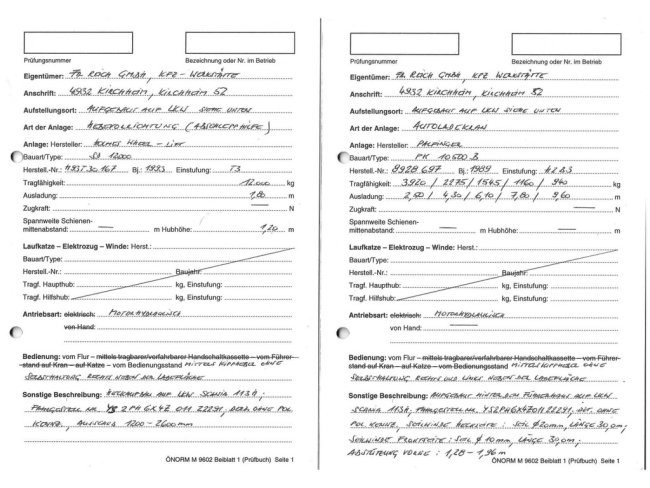 Prüfungsnummer Bezeichnung oder Nr. im Betrieb
Eigentümer: Fa. REICH GMBH, KFZ - WERKSTÄTTE
Anschrift: 4932 KIRCHHEIM, KIRCHHEIM 52
Aufstellungsort: AUFGEBAUT AUF LKW SIEHE UNTEN
Art der Anlage: HEBEVORRICHTUNG (ABSCHLEPPHILFE)
Anlage: Hersteller: HOLMES WHEEL - LIFT
Bauart/Type: 12000
Herstell.-Nr.: Bj.: 1993 Einstufung: T3
Tragfähigkeit: 12.000 kg
Ausladung: 1,80 m
Zugkraft: — N
Spannweite Schienen-
mittenabstand: — m Hubhöhe: 1,20 m
Laufkatze – Elektrozug – Winde: Herst.:
Bauart/Type:
Herstell.-Nr.: Baujahr:
Tragf. Haupthub: kg, Einstufung:
Tragf. Hilfshub: kg, Einstufung:
Antriebsart: elektrisch: MOTORHYDRAULISCH
von Hand:
Bedienung: vom Flur – mittels tragbarer/verfahrbarer Handschaltkassette – vom Führer-
stand auf Kran – auf Katze – vom Bedienungsstand MITTELS KIPPHEBEL OHNE
SELBSTHALTUNG RECHTS NEBEN DER LADEFLÄCHE
Sonstige Beschreibung: HECKAUFBAU AUF LKW SCANIA 113H,
FAHRGESTELL NR. 2 PH 6X4Z 011 22291, OHNE POL
KENNZ., AUSSCHUB 1200 - 2600 mm
ÖNORM M 9602 Beiblatt 1 (Prüfbuch) Seite 1
Prüfungsnummer Bezeichnung oder Nr. im Betrieb
Eigentümer: Fa. REICH GMBH, KFZ WERKSTÄTTE
Anschrift: 4932 KIRCHHEIM, KIRCHHEIM 52
Aufstellungsort: AUFGEBAUT AUF LKW SIEHE UNTEN
Art der Anlage: AUTOLADEKRAN
Anlage: Hersteller: PALFINGER
Bauart/Type: PK 10500 B
Herstell.-Nr.: Bj.: 1989 Einstufung: H2 B3
Tragfähigkeit: 3920 / 2275 / 1545 / 1160 / 940 kg
Ausladung: 2,50 / 4,30 / 6,10 / 7,80 / 9,60 m
Zugkraft: — N
Spannweite Schienen-
mittenabstand: — m Hubhöhe: — m
Laufkatze – Elektrozug – Winde: Herst.:
Bauart/Type:
Herstell.-Nr.: Baujahr:
Tragf. Haupthub: kg, Einstufung:
Tragf. Hilfshub: kg, Einstufung:
Antriebsart: elektrisch: MOTORHYDRAULISCH
von Hand: —
Bedienung: vom Flur – mittels tragbarer/verfahrbarer Handschaltkassette – vom Führer-
stand auf Kran – auf Katze – vom Bedienungsstand MITTELS KIPPHEBEL OHNE
SELBSTHALTUNG RECHTS UND LINKS NEBEN DER LADEFLÄCHE
Sonstige Beschreibung: AUFGEBAUT HINTER DEM FÜHRERHAUS AUF LKW
SCANIA 113H, FAHRGESTELLNR. OHNE
POL KENNZ, SEILWINDE HECKSEITE: SEIL Ø 20mm, LÄNGE 30,0m;
SEILWINDE FRONTSEITE: SEIL Ø 10mm, LÄNGE 30,0m;
ABSTÜTZUNG VORNE: 1,28 - 1,96 m
ÖNORM M 9602 Beiblatt 1 (Prüfbuch) Seite 1